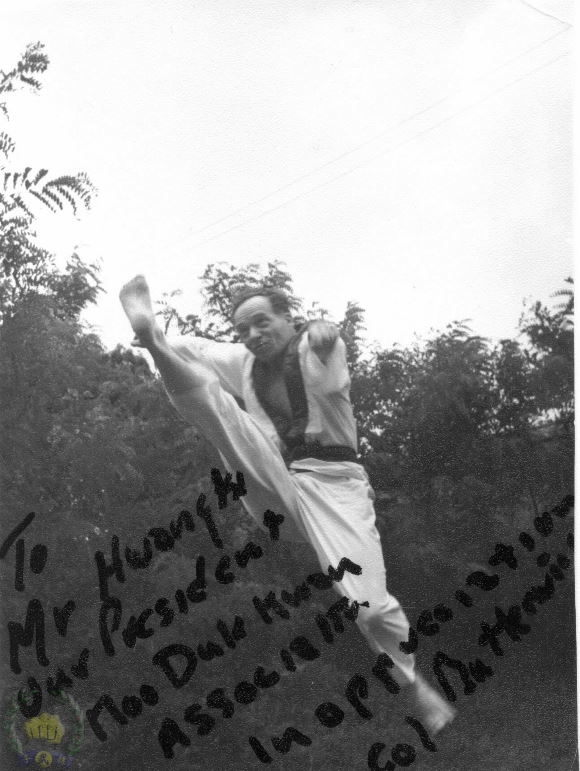 To
Mr Hwang Ki
Our President
Moo Duk Kwan
Association
In appreciation
Col